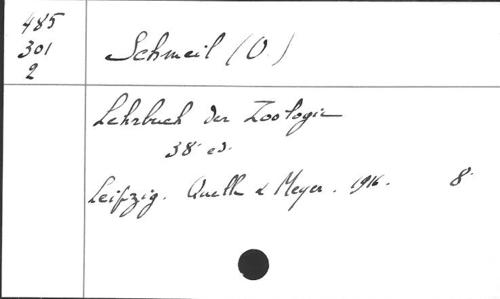 485
301
2
Schmeil (O.)
Lehrbuch der Zoologie
38e ed.
Leipzig. Quelle & Meyer. 1916. 8.